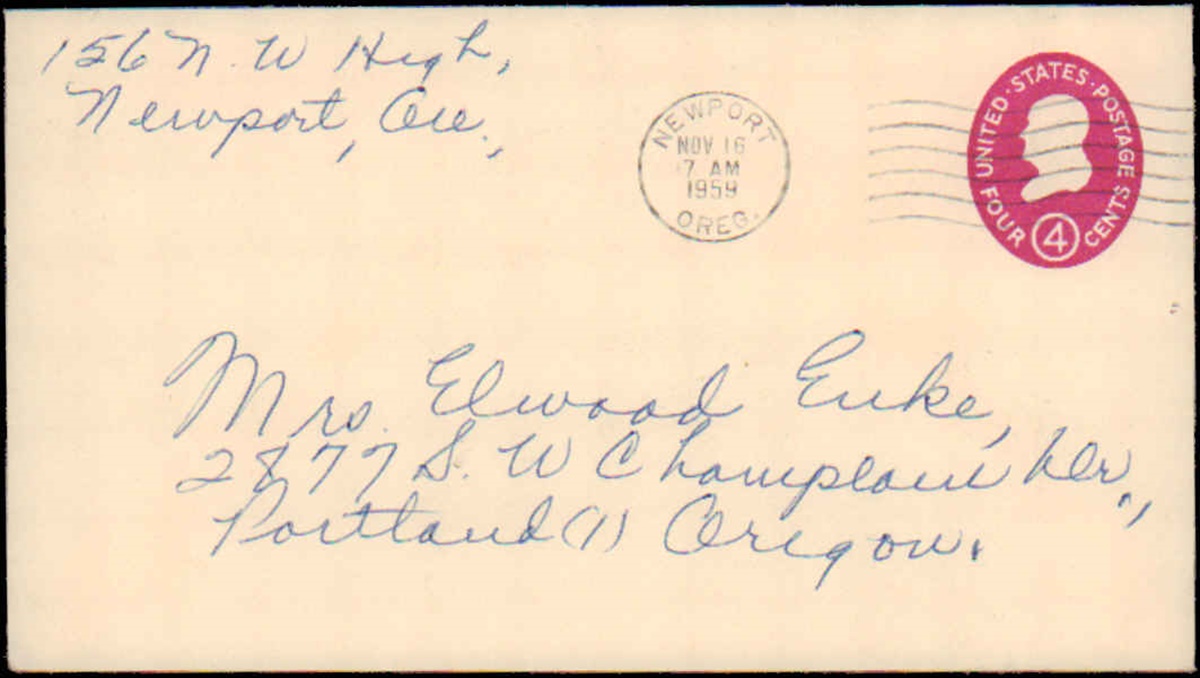 156 N. W High,
Newport, Ore.,
NEWPORT
NOV 16
7 AM
1959
OREG.
UNITED·STATES·POSTAGE
FOUR 4 CENTS
Mrs. Elwood Enke,
2877 S. W Champlain Dr.,
Portland (1) Oregon.